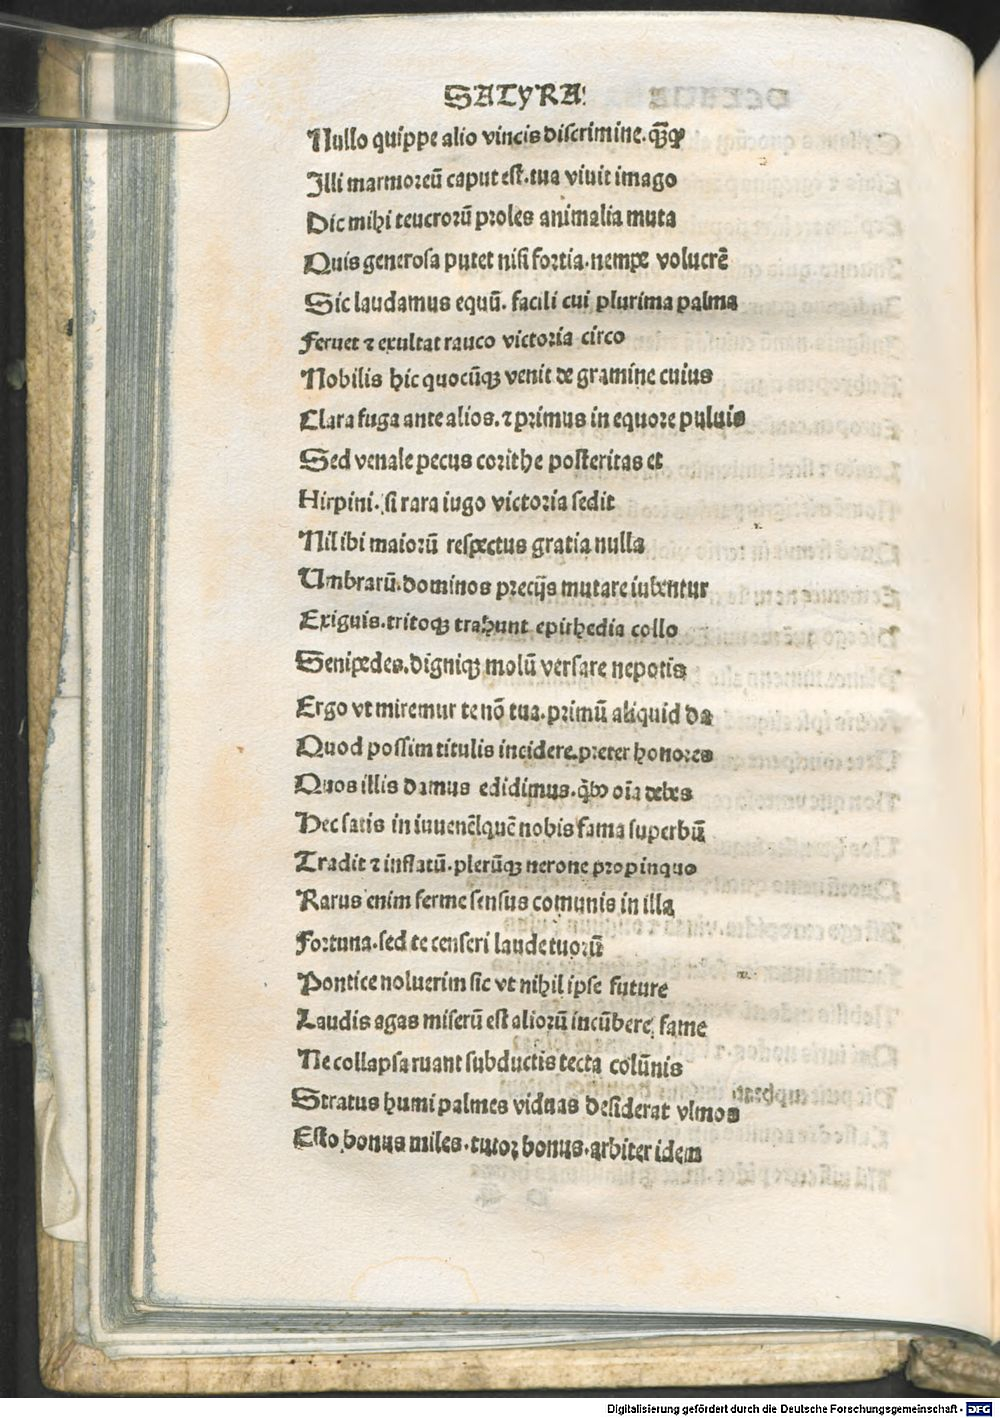 SATYRA
Nullo quippe alio vincis discrimine. qᷓꝙ
Illi marmoreū caput est. tua viuit imago
Dic mihi teucrorū proles animalia muta
Quis generosa putet nisi fortia. nempe volucrē
Sic laudamus equū. facili cui plurima palma
Feruet ⁊ exultat rauco victoria circo
Nobilis hic quocūqꝫ venit de gramine cuius
Clara fuga ante alios. ⁊ primus in equore puluis
Sed venale pecus corithe posteritas et
Hirpini. si rara iugo victoria sedit
Nil ibi maiorū respectus gratia nulla
Umbrarū. dominos precijs mutare iubentur
Exiguis. tritoqꝫ trahunt epirhedia collo
Senipedes. digniqꝫ molū versare nepotis
Ergo vt miremur te nō tua. primū aliquid da
Quod possim titulis incidere. preter honores
Quos illis damus edidimus. oīa debes
Hec satis in iuuenē quē nobis fama superbū
Tradit ⁊ inflatū. plerūqꝫ nerone propinquo
Rarus enim ferme sensus comunis in illa
Fortuna. sed te censeri laude tuorū
Pontice noluerim sic vt nihil ipse future
Laudis agas miserū est aliorū incūbere fame
Ne collapsa ruant subductis tecta colūnis
Stratus humi palmes viduas desiderat vlmos
Esto bonus miles. tutor bonus. arbiter idem
Digitalisierung gefördert durch die Deutsche Forschungsgemeinschaft - DFG